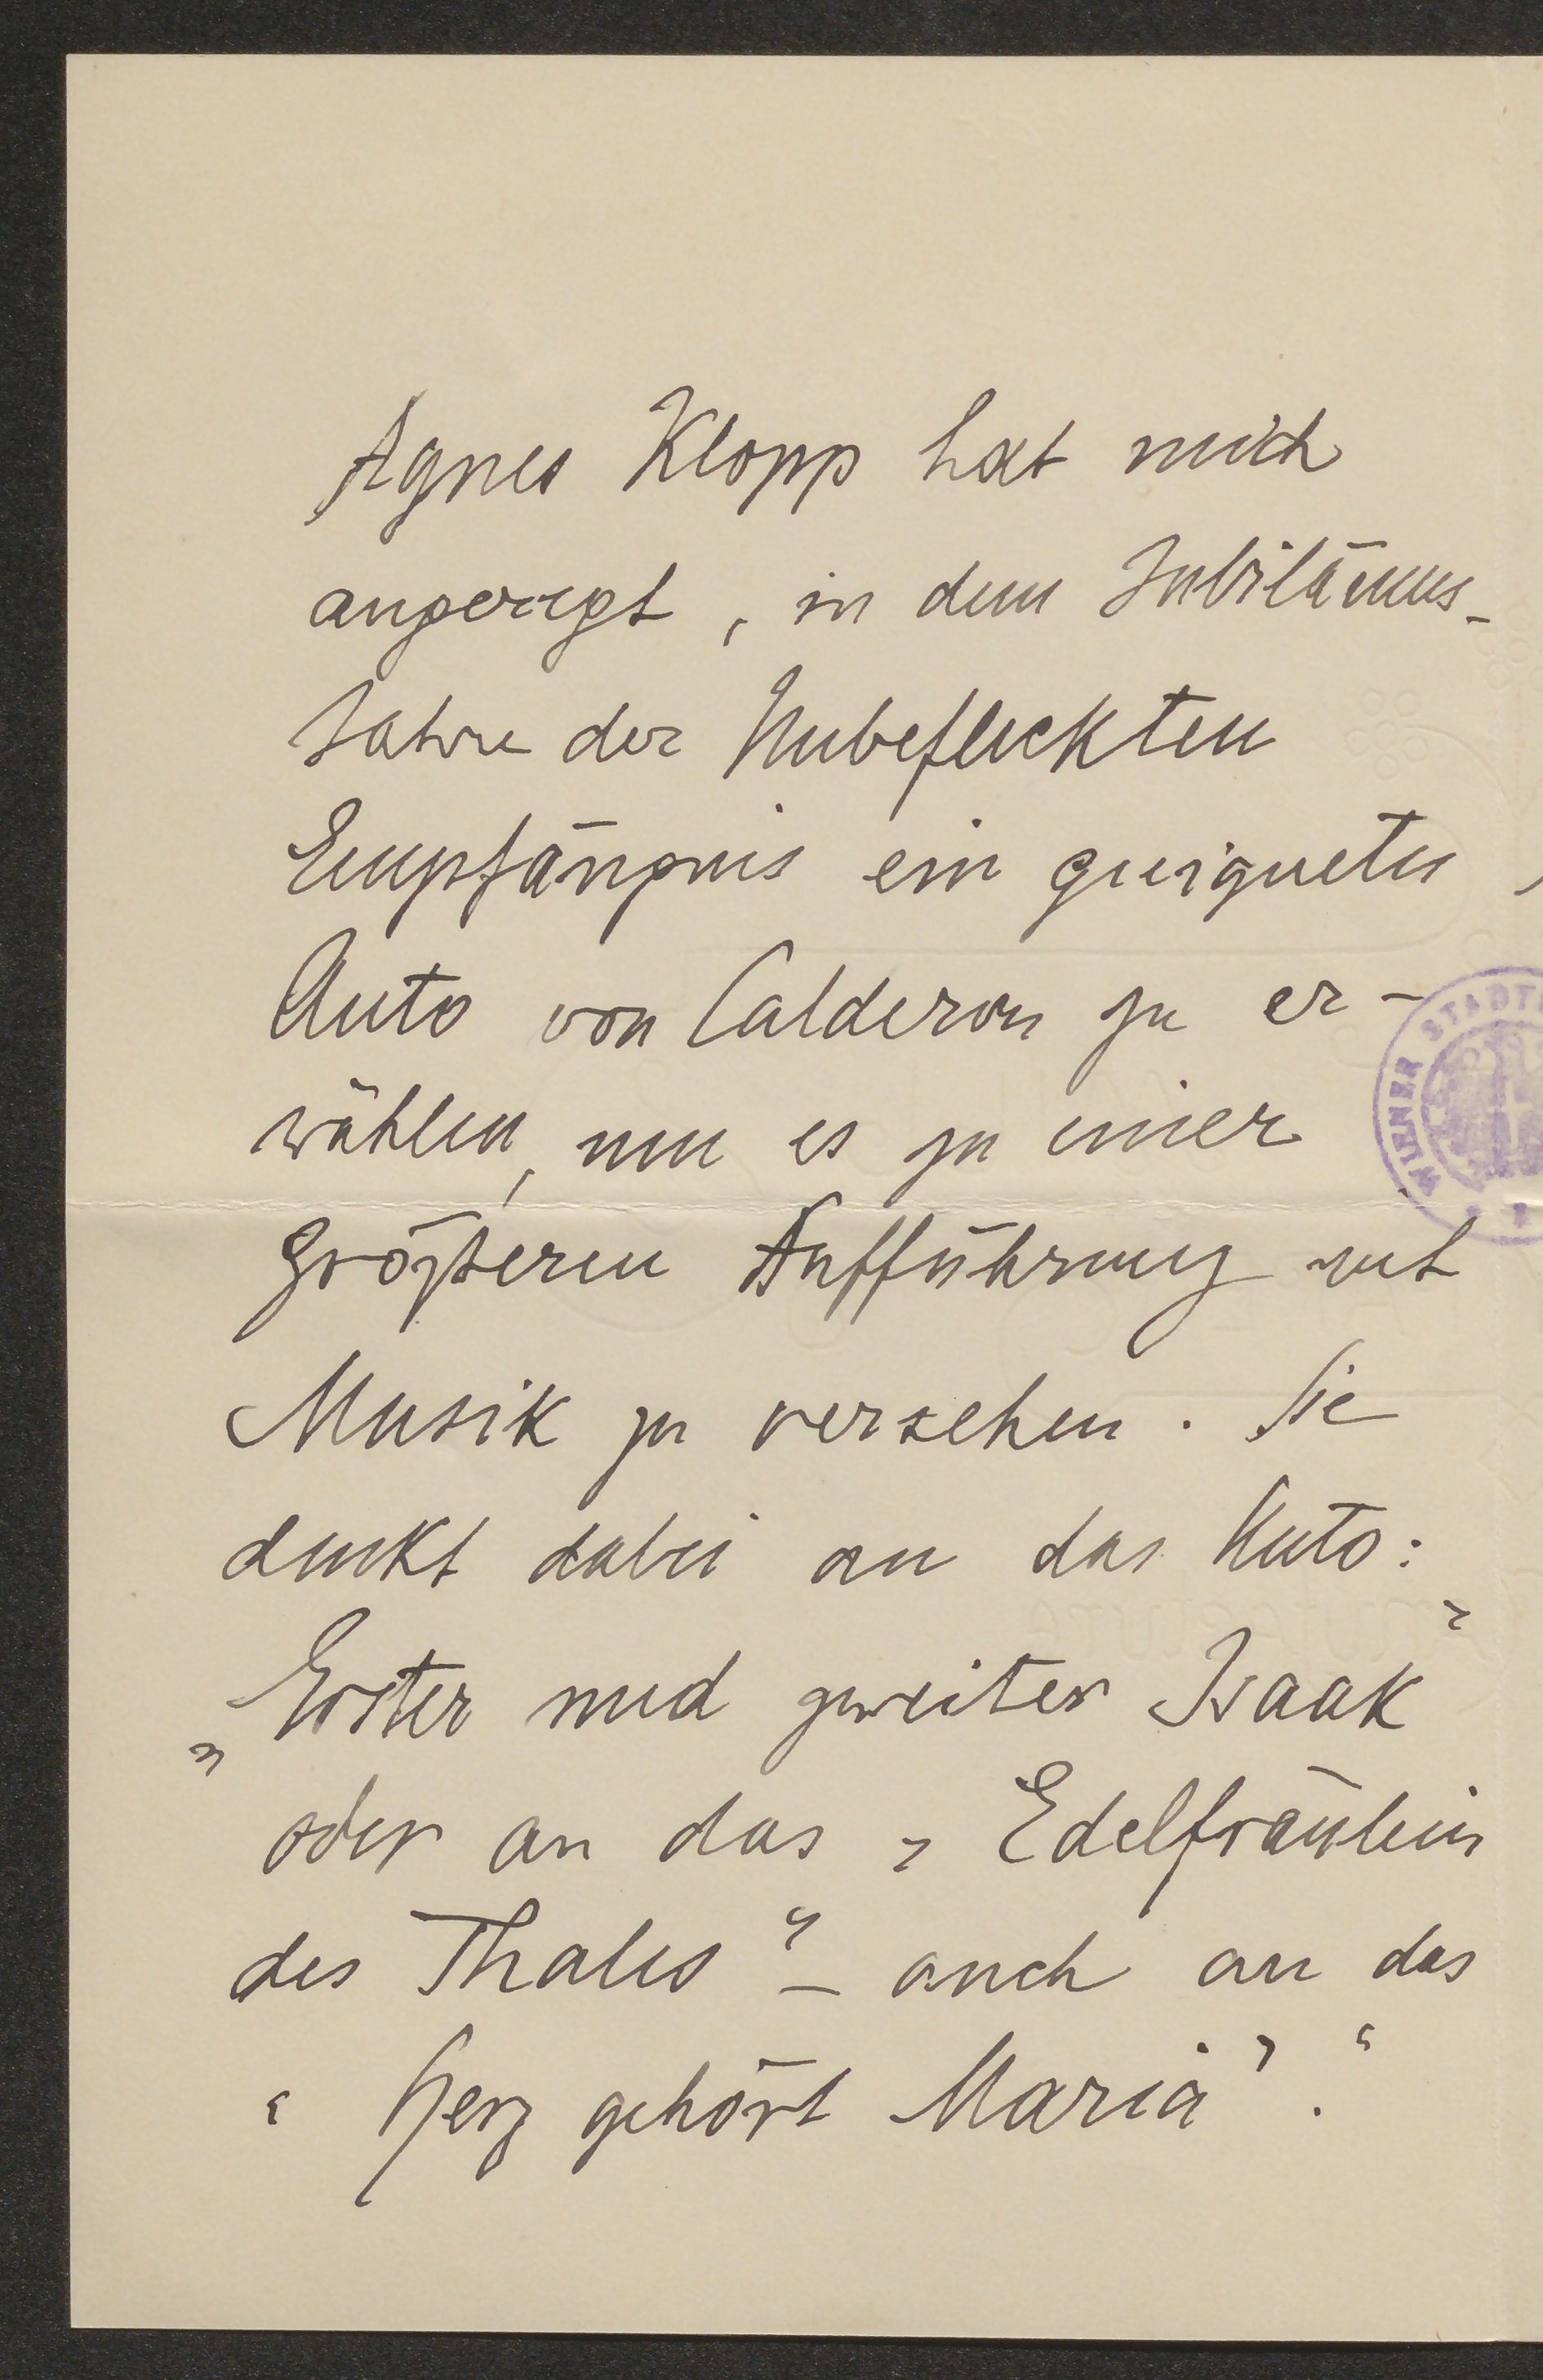 Agnes Klopp hat mich
angeregt, in dem Jubiläums-
Jahre der Unbefleckten
Empfängnis ein geeignetes
Auto von Calderon zu er-
wählen, um es zu einer
größeren Aufführung mit
Musik zu versehen. Sie
denkt dabei an das Auto:
„Erster und zweiter Isaak"
oder an das „Edelfräulein
des Thales" – auch an das
"Herz gehört Maria".
WIENER STADT